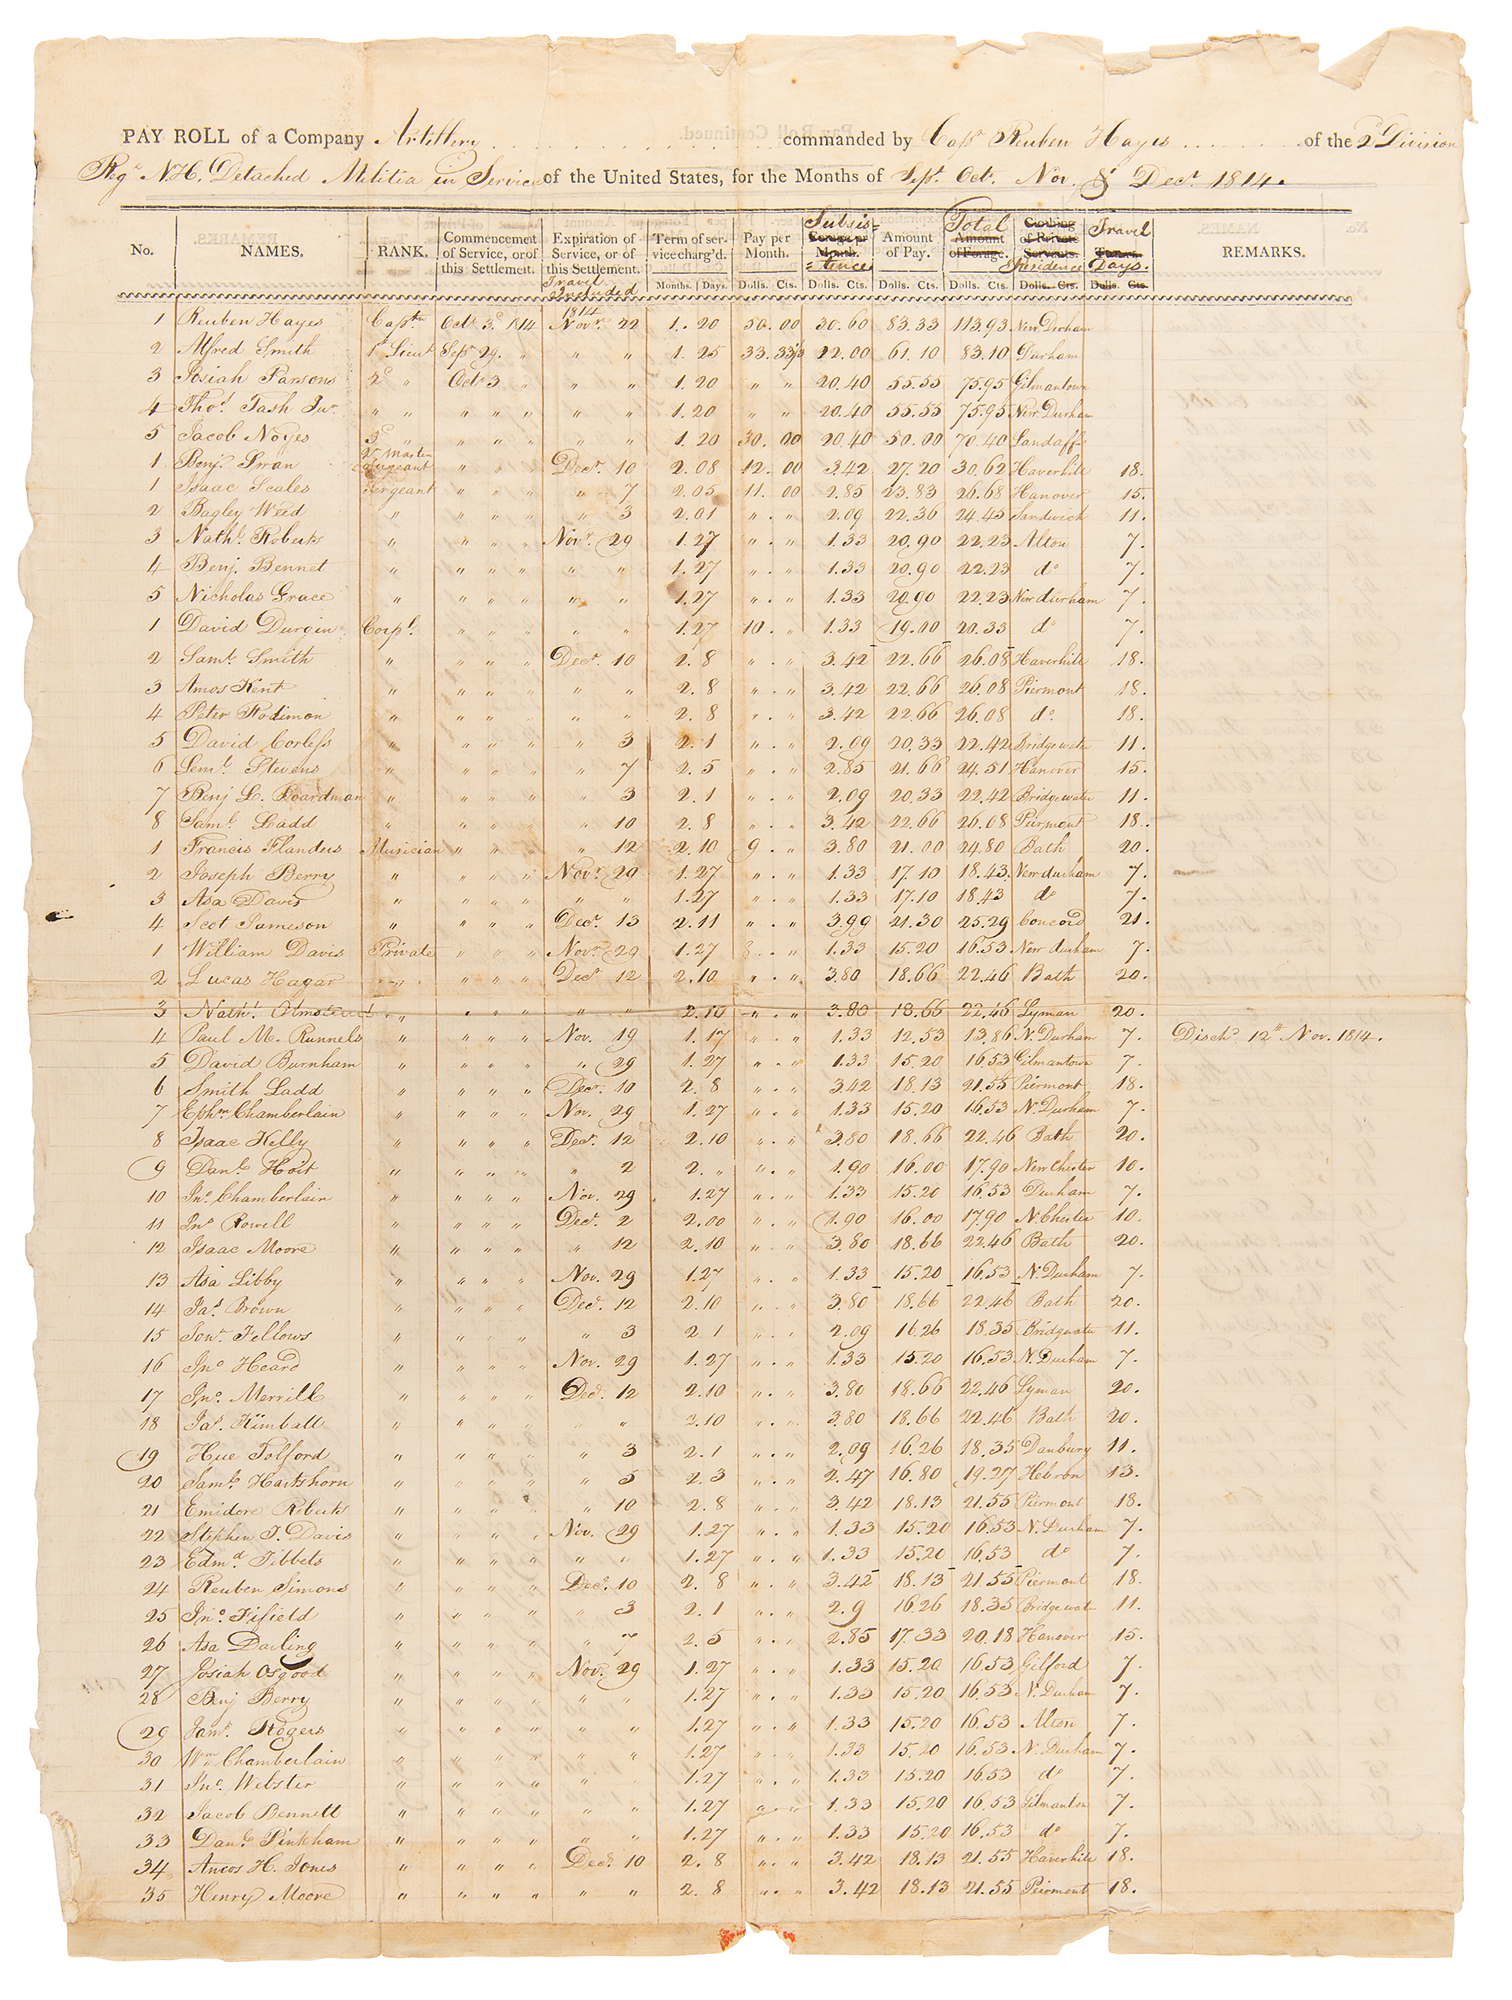 PAY ROLL of a Company Artillery commanded by Capt Reuben Hayes of the 2d Division
Regt N.H. Detached Melitia in Service of the United States, for the Months of Sept. Oct. Nov. & Decr. 1814.
No. NAMES. RANK. Commencement of Service, or of this Settlement. Expiration of Service, or of this Settlement. Travel Included Term of service charg'd. Months. Days. Pay per Month. Dolls. Cts. Subsistence Dolls. Cts. Amount of Pay. Dolls. Cts. Total Dolls. Cts. Residence Travel Days. REMARKS.
1 Reuben Hayes Captn Octr 3d 1814 1814 Novr 22 1.20 50.00 30.60 83.33 113.93 New Durham
2 Alfred Smith 1st Lieut Sept 29. " " " 1.25 33.33⅓ 22.00 61.10 83.10 Durham
3 Josiah Parsons 2d " Octr 3 " " " 1.20 " " 20.40 55.55 75.95 Gilmantown
4 Thos. Tash Jur. " " " " " " " 1.20 " " 20.40 55.55 75.95 New Durham
5 Jacob Noyes 3d " " " " " " 1.20 30.00 20.40 50.00 70.40 Landaff
1 Benj. Swan Qr Master Sergeant " " " Decr. 10 2.08 12.00 3.42 27.20 30.62 Haverhill 18.
1 Isaac Scales Sergeant " " " " 7 2.05 11.00 2.85 23.83 26.68 Hanover 15.
2 Bagley Weed " " " " " 3 2.01 " . " 2.09 22.36 24.45 Sandwich 11.
3 Nathl. Roberts " " " " Novr. 29 1.27 " . " 1.33 20.90 22.23 Alton 7.
4 Benj. Bennet " " " " " " 1.27 " . " 1.33 20.90 22.23 do 7.
5 Nicholas Grace " " " " " " 1.27 " . " 1.33 20.90 22.23 New durham 7.
1 David Durgin Corpl. " " " " " 1.27 10. " 1.33 19.00 20.33 do 7.
2 Saml. Smith " " " " Decr. 10 2.8 " . " 3.42 22.66 26.08 Haverhill 18.
3 Amos Kent " " " " " " 2.8 " . " 3.42 22.66 26.08 Piermont 18.
4 Peter Rodimon " " " " " " 2.8 " . " 3.42 22.66 26.08 do. 18.
5 David Corless " " " " " 3 2.1 " . " 2.09 20.33 22.42 Bridgewater 11.
6 Seml. Stevens " " " " " 7 2.5 " . " 2.85 21.66 24.51 Hanover 15.
7 Benj L. Boardman " " " " " 3 2.1 " . " 2.09 20.33 22.42 Bridgewater 11.
8 Saml. Ladd " " " " " 10 2.8 " . " 3.42 22.66 26.08 Piermont 18.
1 Francis Flanders Musician " " " " 12 2.10 9. " 3.80 21.00 24.80 Bath 20.
2 Joseph Berry " " " " Novr. 29 1.27 " . " 1.33 17.10 18.43 New durham 7.
3 Asa Davis " " " " " " 1.27 " . " 1.33 17.10 18.43 do 7.
4 Scot Jameson " " " " Decr. 13 2.11 " . " 3.99 21.30 25.29 Concord 21.
1 William Davis Private " " " Novr. 29 1.27 8. " 1.33 15.20 16.53 New durham 7.
2 Lucas Hagar " " " " Decr. 12 2.10 " . " 3.80 18.66 22.46 Bath 20.
3 Nathl. Olmstead " " " " " " 2.10 " . " 3.80 18.66 22.46 Lyman 20.
4 Paul M. Runnels " " " " Nov. 19 1.17 " . " 1.33 12.53 13.86 N. Durham 7. Dischd 12th Nov. 1814.
5 David Burnham " " " " " 29 1.27 " . " 1.33 15.20 16.53 Gilmantown 7.
6 Smith Ladd " " " " Decr. 10 2.8 " . " 3.42 18.13 21.55 Piermont 18.
7 Ephm Chamberlain " " " " Nov. 29 1.27 " . " 1.33 15.20 16.53 N. Durham 7.
8 Isaac Kelly " " " " Decr. 12 2.10 " . " 3.80 18.66 22.46 Bath 20.
9 Danl. Hoit " " " " " 2 2. " " . " 1.90 16.00 17.90 New Chester 10.
10 Jno. Chamberlain " " " " Nov. 29 1.27 " . " 1.33 15.20 16.53 Durham 7.
11 Jno Rowell " " " " Decr. 2 2.00 " . " 1.90 16.00 17.90 N. Chester 10.
12 Isaac Moore " " " " " 12 2.10 " . " 3.80 18.66 22.46 Bath 20.
13 Asa Libby " " " " Nov. 29 1.27 " . " 1.33 15.20 16.53 N. Durham 7.
14 Jas. Brown " " " " Decr. 12 2.10 " . " 3.80 18.66 22.46 Bath 20.
15 Jonn. Fellows " " " " " 3 2.1 " . " 2.09 16.26 18.35 Bridgwater 11.
16 Jno Heard " " " " Nov. 29 1.27 " . " 1.33 15.20 16.53 N. Durham 7.
17 Jno. Merrill " " " " Decr. 12 2.10 " . " 3.80 18.66 22.46 Lyman 20.
18 Jas. Kimball " " " " " " 2.10 " . " 3.80 18.66 22.46 Bath 20.
19 Hue Tolford " " " " " 3 2.1 " . " 2.09 16.26 18.35 Danbury 11.
20 Saml. Hartshorn " " " " " 5 2.3 " . " 2.47 16.80 19.27 Hebron 13.
21 Emidore Roberts " " " " " 10 2.8 " . " 3.42 18.13 21.55 Piermont 18.
22 Stephen T. Davis " " " " Nov. 29 1.27 " . " 1.33 15.20 16.53 N. Durham 7.
23 Edmd Tibbets " " " " " " 1.27 " . " 1.33 15.20 16.53 do 7.
24 Reuben Simons " " " " Decr. 10 2.8 " . " 3.42 18.13 21.55 Piermont 18.
25 Jno. Fifield " " " " " 3 2.1 " . " 2.9 16.26 18.35 Bridgewater 11.
26 Asa Darling " " " " " 7 2.5 " . " 2.85 17.33 20.18 Hanover 15.
27 Josiah Osgood " " " " Nov. 29 1.27 " . " 1.33 15.20 16.53 Gilford 7.
28 Benj Berry " " " " " " 1.27 " . " 1.33 15.20 16.53 N. Durham 7.
29 Jams Rogers " " " " " " 1.27 " . " 1.33 15.20 16.53 Alton 7.
30 Wm Chamberlain " " " " " " 1.27 " . " 1.33 15.20 16.53 N. Durham 7.
31 Jno. Webster " " " " " " 1.27 " . " 1.33 15.20 16.53 do 7.
32 Jacob Bennett " " " " " " 1.27 " . " 1.33 15.20 16.53 Gilmanton 7.
33 Danl. Pinkham " " " " " " 1.27 " . " 1.33 15.20 16.53 do 7.
34 Amos H. Jones " " " " Decr. 10 2.8 " . " 3.42 18.13 21.55 Haverhill 18.
35 Henry Moore " " " " " " 2.8 " . " 3.42 18.13 21.55 Peirmont 18.